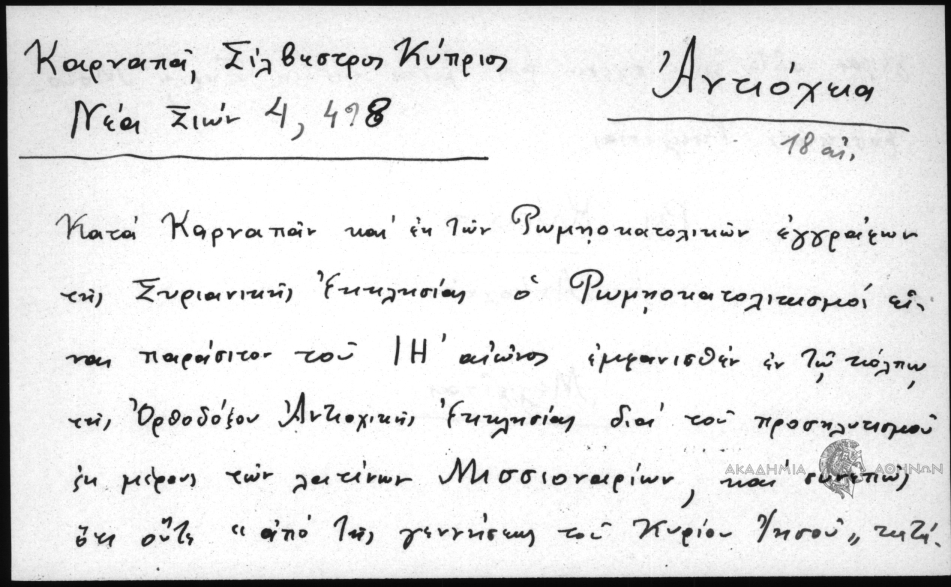 Καρναπᾶ, Σίλβεστρος Κύπριος
Νέα Σιών 4, 498
Ἀντιόχεια
18 αἰ.
Κατά Καρναπᾶν καί ἐκ τῶν Ρωμῃοκατολικῶν ἐγγράφων
τῆς Συριανικῆς Ἐκκλησίας ὁ Ρωμῃοκατολικισμός εἶ-
ναι παράσιτον τοῦ ΙΗ΄ αἰῶνος ἐμφανισθέν ἐν τῷ κόλπῳ
τῆς Ὀρθοδόξου Ἀντιοχικῆς Ἐκκλησίας διά τοῦ προσηλυτισμοῦ
ἐκ μέρους τῶν λατίνων Μισσιοναρίων, καί συνεπῶς
ὅτι οὔτε "ἀπό τῆς γεννήσεως τοῦ Κυρίου Ἰησοῦ"
ΑΚΑΔΗΜΙΑ ΑΘΗΝΩΝ